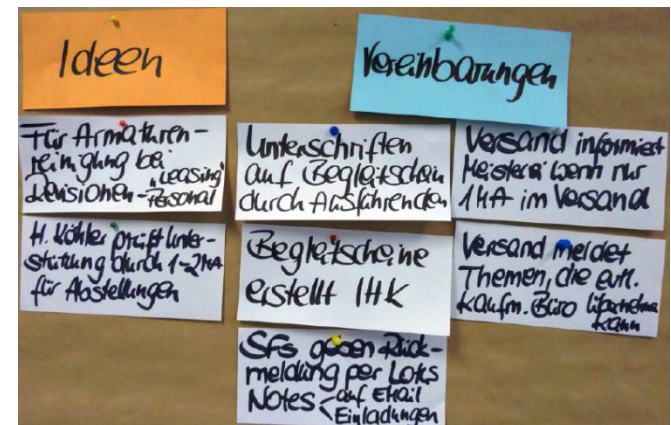 Ideen
Für Armaturen-
reinigung bei
Revisionen - "Leasing"
Personal
H. Köhler prüft Unter-
stützung durch 1-2 MA
für Abstellungen
Vereinbarungen
Unterschriften
auf Begleitschein
durch Ausführenden
Begleitscheine
erstellt IHK
SFs geben Rück-
meldung per Lotus
Notes < auf EMail
Einladungen
Versand informiert
Meisterei wenn nur
1 MA im Versand
Versand meldet
Themen, die evtl.
Kaufm. Büro übernehmen
kann